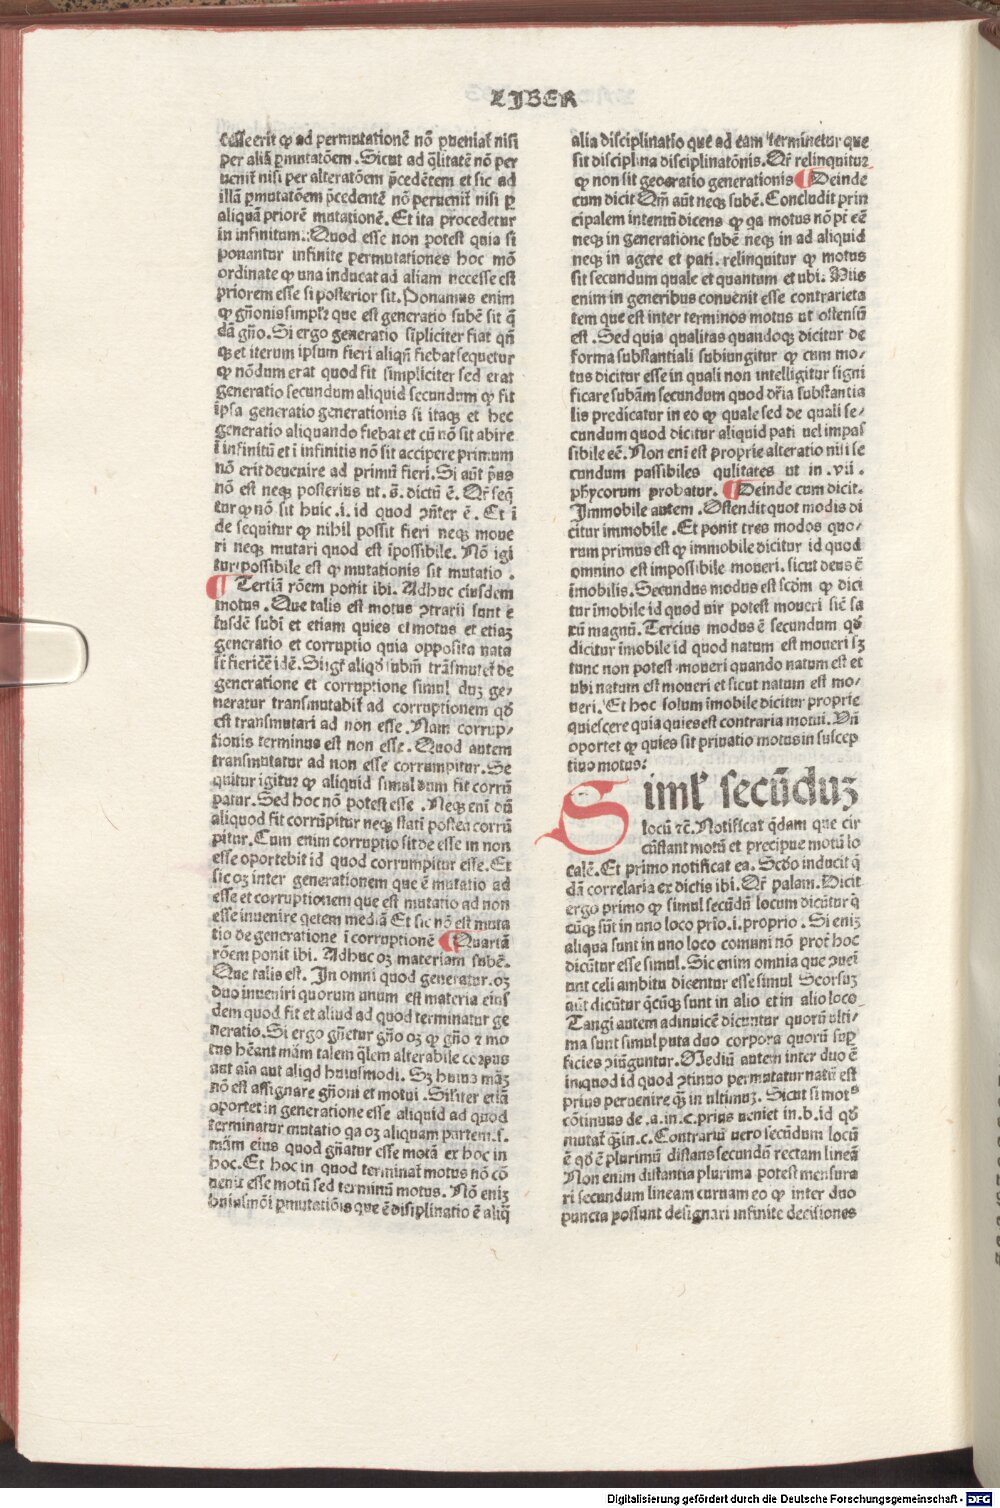 LIBER
cesse erit ꝙ ad permutationē nō ꝑueniat̄ nisi
per aliā ꝑmutatōem . Sicut ad q̄litatē nō per
uenit̄ nisi per alteratōem p̄cedētem et sic ad
illā ꝑmutatōem p̄cedentē nō peruenit̄ nisi ꝑ
aliquā priorē mutationē. Et ita procedetur
in infinitum. Quod esse non potest quia si
ponantur infinite permutationes hoc mō
ordinate ꝙ una inducat ad aliam necesse est
priorem esse si posterior sit. Ponamus enim
ꝙ gn̄onis simpl'r que est generatio subē sit q̄
dā gn̄o. Si ergo generatio sīpliciter fiat qn̄
qȝ et iterum ipsum fieri aliqn̄ fiebat sequetur
ꝙ nōdum erat quod fit simpliciter sed erat
generatio secundum aliquid secundum ꝙ fit
īpsa generatio generationis si itaqȝ et hec
generatio aliquando fiebat et cū nō sit abire
ī infinitū et ī infinitis nō sit accipere primum
nō erit deuenire ad primū fieri. Si aūt p̄us
nō est neqȝ posterius ut . s̄. dictū ē. Qr̄ seq̄
tur ꝙ nō sit huic .i. id quod ꝯn̄ter ē. Et ī
de sequitur ꝙ nihil possit fieri neqȝ moue
ri neqȝ mutari quod est īpossibile. Nō igi
tur possibile est ꝙ mutationis sit mutatio .
¶ Tertiā rōem ponit ibi. Adhuc eiusdem
motus . Que talis est motus ꝯtrarii sunt e
iusdē subī et etiam quies et motus et etiaȝ
generatio et corruptio quia opposita nata
generatione et corruptione simul duȝ ge/
neratur transmutabit̄ ad corruptionem qđ
est transmutari ad non esse . Nam corrup/
tionis terminus est non esse . Quod autem
transmutatur ad non esse corrumpitur. Se
quitur igitur ꝙ aliquid simul dum fit corrū
patur. Sed hoc nō potest esse . Neqȝ eni dū
aliquod fit corrūpitur neqȝ statī postea corrū
pitur. Cum enim corruptio sit de esse in non
esse oportebit id quod corrumpitur esse. Et
sic oȝ inter generationem que ē mutatio ad
esse et corruptionem que est mutatio ad non
esse inuenire qetem mediā Et sic nō est muta
tio de generatione ī corruptionē ¶ Quartā
rōem ponit ibi. Adhuc oȝ materiam subē.
Que talis est. In omni quod generatur . oȝ
duo inueniri quorum unum est materia eius
dem quod fit et aliud ad quod terminatur ge
neratio. Si ergo gn̄etur gn̄o oȝ ꝙ gn̄o ⁊ mo
tus hēant mām talem q̄lem alterabile corpus
aut aīa aut aliqd huiusmodi. Sȝ huius māȝ
nō est assignare gn̄oni et motui . Sil̄iter etiā
oportet in generatione esse aliquid ad quod
terminatur mutatio qa oȝ aliquam partem . s.
mām eius quod gn̄atur esse motā ex hoc in
hoc. Et hoc in quod terminat̄ motus nō cō
uenit esse motū sed terminū motus . Nō eniȝ
huiusmōi ꝑmutatiōis que ē disciplinatio ē aliq̄
alia disciplinatio que ad eam terminetur que
sit disciplina disciplinatōnis. Qr̄ relinquitur
ꝙ non sit generatio generationis ¶ Deinde
cum dicit Qm̄ aūt neqȝ subē. Concludit prin
cipalem intentū dicens ꝙ qa motus nō pt̄ eē
neqȝ in generatione subē neqȝ in ad aliquid
neqȝ in agere et pati . relinquitur ꝙ motus
sit secundum quale et quantum et ubi. Hiis
enim in generibus conuenit esse contrarieta
tem que est inter terminos motus ut ostensū
est . Sed quia qualitas quandoqȝ dicitur de
forma substantiali subiungitur ꝙ cum mo/
tus dicitur esse in quali non intelligitur signi
ficare subām secundum quod dr̄ia substantia
lis predicatur in eo ꝙ quale sed de quali se/
cundum quod dicitur aliquid pati uel impas
sibile eē. Non eni est proprie alteratio nisi se
cundum passibiles qulitates ut in . vii .
phycorum probatur. ¶ Deinde cum dicit.
Immobile autem . Ostendit quot modis di
citur immobile . Et ponit tres modos quo/
rum primus est ꝙ immobile dicitur id quod
omnino est impossibile moueri. sicut deus ē
īmobilis. Secundus modus est scd̄m ꝙ dici
tur īmobile id quod uir potest moueri sič sa
xū magnū. Tercius modus ē secundum qđ
dicitur īmobile id quod natum est moueri sȝ
tunc non potest moueri quando natum est et
ubi natum est moueri et sicut natum est mo/
ueri. Et hoc solum īmobile dicitur proprie
quiescere quia quies est contraria motui. Vn̄
oportet ꝙ quies sit priuatio motus in suscep
tiuo motus:
Siml' secūduȝ
locū ⁊č. Notificat q̄dam que cir
cūstant motū et precipue motū lo
calē. Et primo notificat ea. Scđo inducit q̄
dā correlaria ex dictis ibi. Qr̄ palam. Dicit
ergo primo ꝙ simul secūdū locum dicūtur q̄
cūqȝ sūt in uno loco prīo .i. proprio . Si eniȝ
aliqua sunt in uno loco comuni nō prot̄ hoc
dicūtur esse simul. Sic enim omnia que ꝯuei
unt celi ambitu dicentur esse simul Scorsuȝ
aūt dicūtur q̄cūqȝ sunt in alio et in alio loco
Tangi autem adinuicē dicuntur quorū ulti/
ma sunt simul puta duo corpora quorū suꝑ
ficies ꝯiūguntur. Mediū autem inter duo ē
in quod id quod ꝯtinuo permutatur natū est
prius peruenire q̄ȝ in ultimuȝ. Sicut si mot⁹
cōtinuus de .a. in .c. prius ueniet in .b. id qđ
mutat̄ q̄ȝ in .c. Contrariū uero secūdum locū
ē qđ ē plurimū distans secundū rectam lineā
Non enim distantia plurima potest mensura
ri secundum lineam curuam eo ꝙ inter duo
puncta possunt designari infinite decisiones
Digitalisierung gefördert durch die Deutsche Forschungsgemeinschaft - DFG